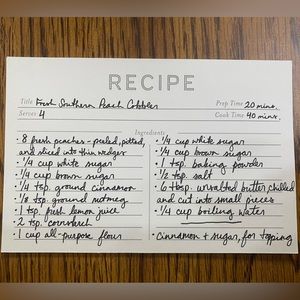 RECIPE
Title Fresh Southern Peach Cobbler Prep Time 20 mins.
Serves 4 Cook Time 40 mins.
Ingredients
• 8 fresh peaches - peeled, pitted,
and sliced into thin wedges
• 1/4 cup white sugar
• 1/4 cup brown sugar
• 1/4 tsp. ground cinnamon
• 1/8 tsp. ground nutmeg
• 1 tsp. fresh lemon juice
• 2 tsp. cornstarch
• 1 cup all-purpose flour
• 1/4 cup white sugar
• 1/4 cup brown sugar
• 1 tsp. baking powder
• 1/2 tsp. salt
• 6 tbsp. unsalted butter, chilled
and cut into small pieces
• 1/4 cup boiling water
• Cinnamon + sugar, for topping